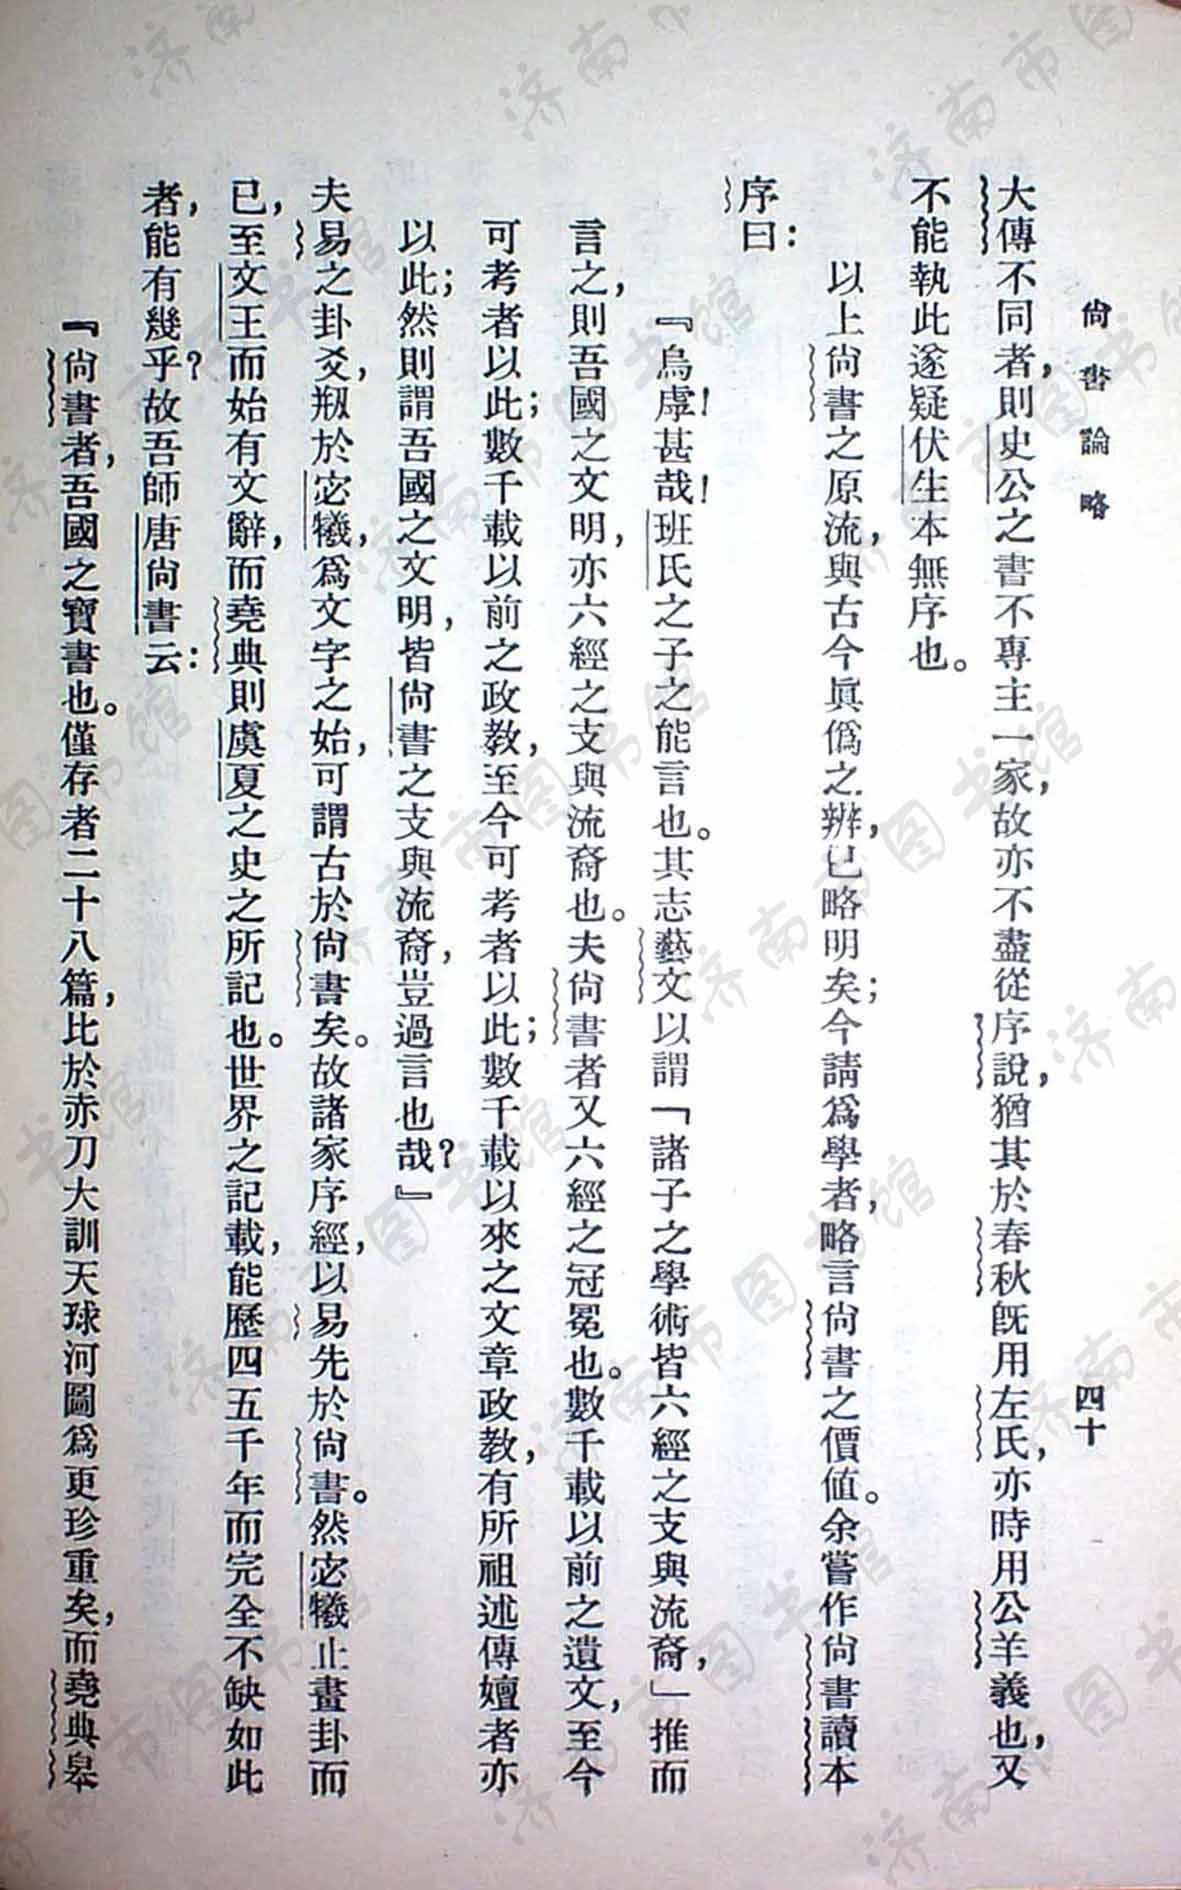 尙書論略
四十
大傳不同者，則史公之書不專主一家，故亦不盡從序說，猶其於春秋旣用左氏，亦時用公羊義也，又
不能執此遂疑伏生本無序也。
以上尙書之原流，與古今眞僞之辨，已略明矣；今請爲學者，略言尙書之價値。余嘗作尙書讀本
序曰：
『烏虖！甚哉！班氏之子之能言也。其志藝文以謂「諸子之學術皆六經之支與流裔，」推而
言之，則吾國之文明，亦六經之支與流裔也。夫尙書者又六經之冠冕也。數千載以前之遺文，至今
可考者以此；數千載以前之政敎，至今可考者以此；數千載以來之文章政敎，有所祖述傳嬗者亦
以此；然則謂吾國之文明，皆尙書之支與流裔，豈過言也哉？』
夫易之卦爻，剏於宓犧，爲文字之始，可謂古於尙書矣。故諸家序經，以易先於尙書。然宓犧止畫卦而
已，至文王而始有文辭，而堯典則虞夏之史之所記也。世界之記載，能歷四五千年而完全不缺如此
者，能有幾乎？故吾師唐尙書云：
『尙書者，吾國之寶書也。僅存者二十八篇，比於赤刀大訓天球河圖爲更珍重矣，而堯典皋
济南市图书馆